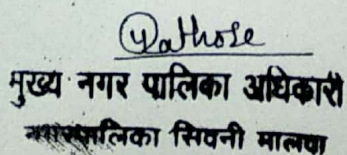 Rathore
मुख्य नगर पालिका अधिकारी
नगरपालिका सिवनी मालवा